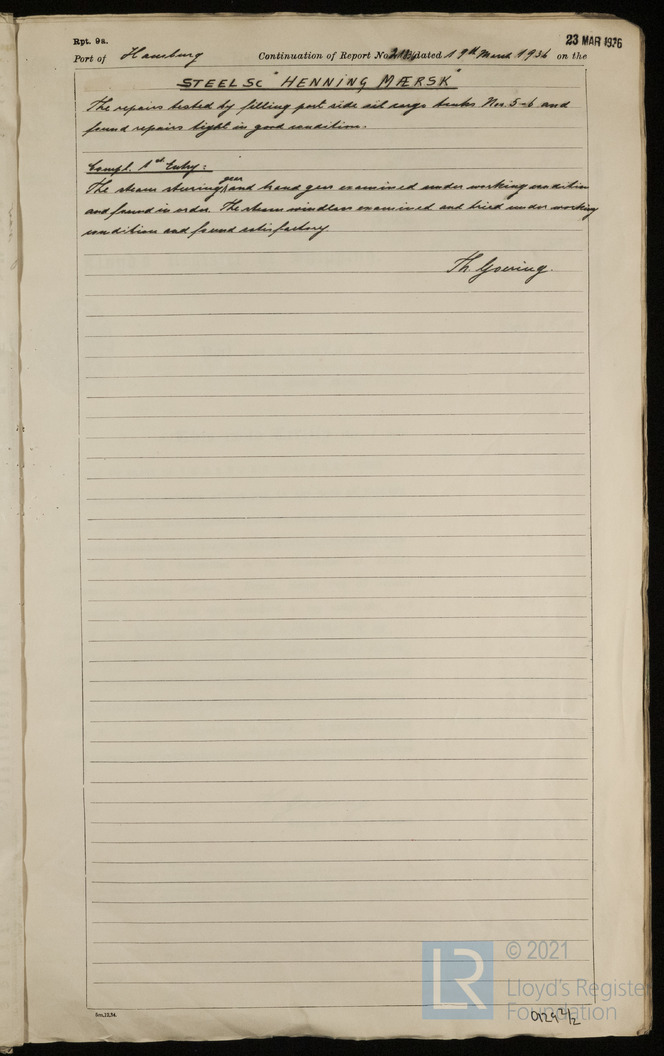 Rpt. 9a.
23 MAR 1936
Port of Hamburg Continuation of Report No. dated 19th March 1936 on the
STEEL SC "HENNING MÆRSK"
The repairs tested by filling port side oil cargo tanks Nos 5-6 and
found repairs tight in good condition.
Compl. 1st Entry:
gear
The steam steering, and hand gear examined under working condition
and found in order. The steam windlass examined and tried under working
condition and found satisfactory.
Th. Goering.
5m,12,34.
© 2021
Lloyd's Register
Foundation
LR
0129 2/2